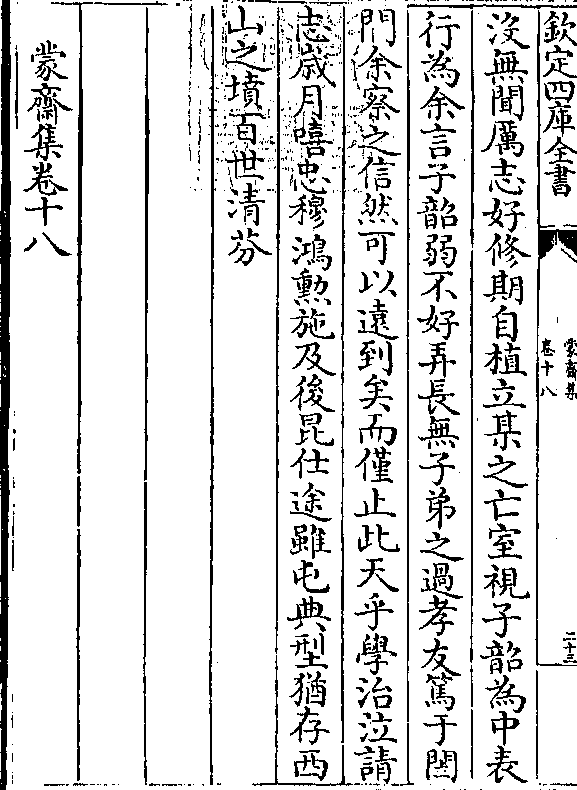 欽定四庫全書
蒙齋集
卷十八
二十三
沒無聞厲志好修期自植立某之亡室視子韶為中表
行為余言子韶弱不好弄長無子弟之過孝友篤于閨
門余察之信然可以遠到矣而僅止此天乎學治泣請
志歲月嘻忠穆鴻勲施及後昆仕途雖屯典型猶存西
山之墳百世清芬
蒙齋集卷十八